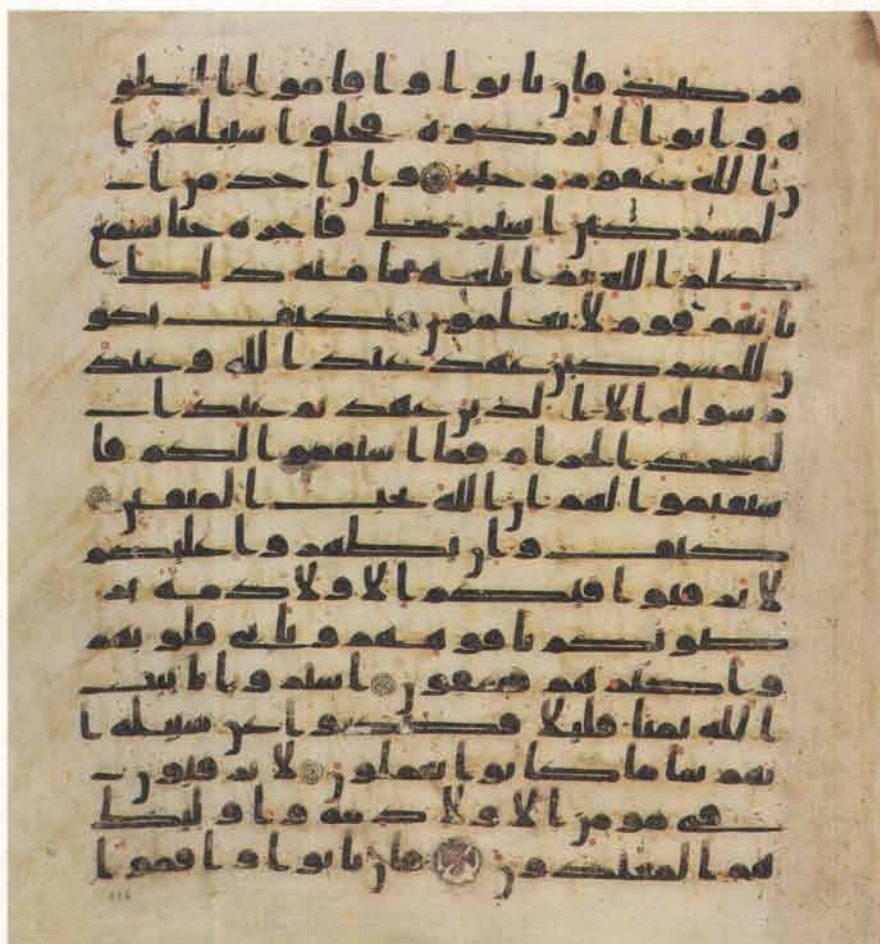 مرصد فان تابوا واقاموا الصلو
ه واتوا الزكوه فخلوا سبيلهم ا
ن الله غفور رحيم وان احد من ا
لمشركين استجرك فاجره حتى يسمع
كلم الله ثم ابلغه مامنه ذلك
بانهم قوم لا يعلمون كيف يكو
ن للمشركين عهد عند الله وعند
رسوله الا الذين عهدتم عند ا
لمسجد الحرام فما استقموا لكم فا
ستقيموا لهم ان الله يحب المتقين
كيف وان يظهروا عليكم
لا يرقبوا فيكم الا ولا ذمه ير
ضونكم بافوههم وتابى قلوبهم
واكثرهم فسقون اشتروا بايت
الله ثمنا قليلا فصدوا عن سبيله ا
نهم سا ما كانوا يعملون لا يرقبون
في مومن الا ولا ذمه واوليك
هم المعتدون فان تابوا واقاموا ا